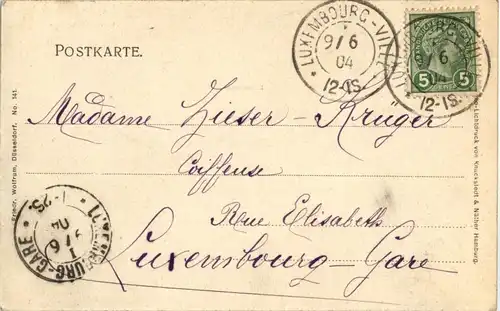 POSTKARTE.
LUXEMBOURG-VILLE
9/6
04
12-1S.
5 5
LUXEMBOURG-VILLE
9/6
04
12-1S.
Madame Zieser-Kruger
Coiffeuse
Rue Elisabeth
Luxembourg-Gare
LUXEMBOURG-GARE
1-2S.
9/6
04
Friedr. Wolfrum, Düsseldorf. No. 141.
Lichtdruck von Knackstedt & Näther Hamburg.